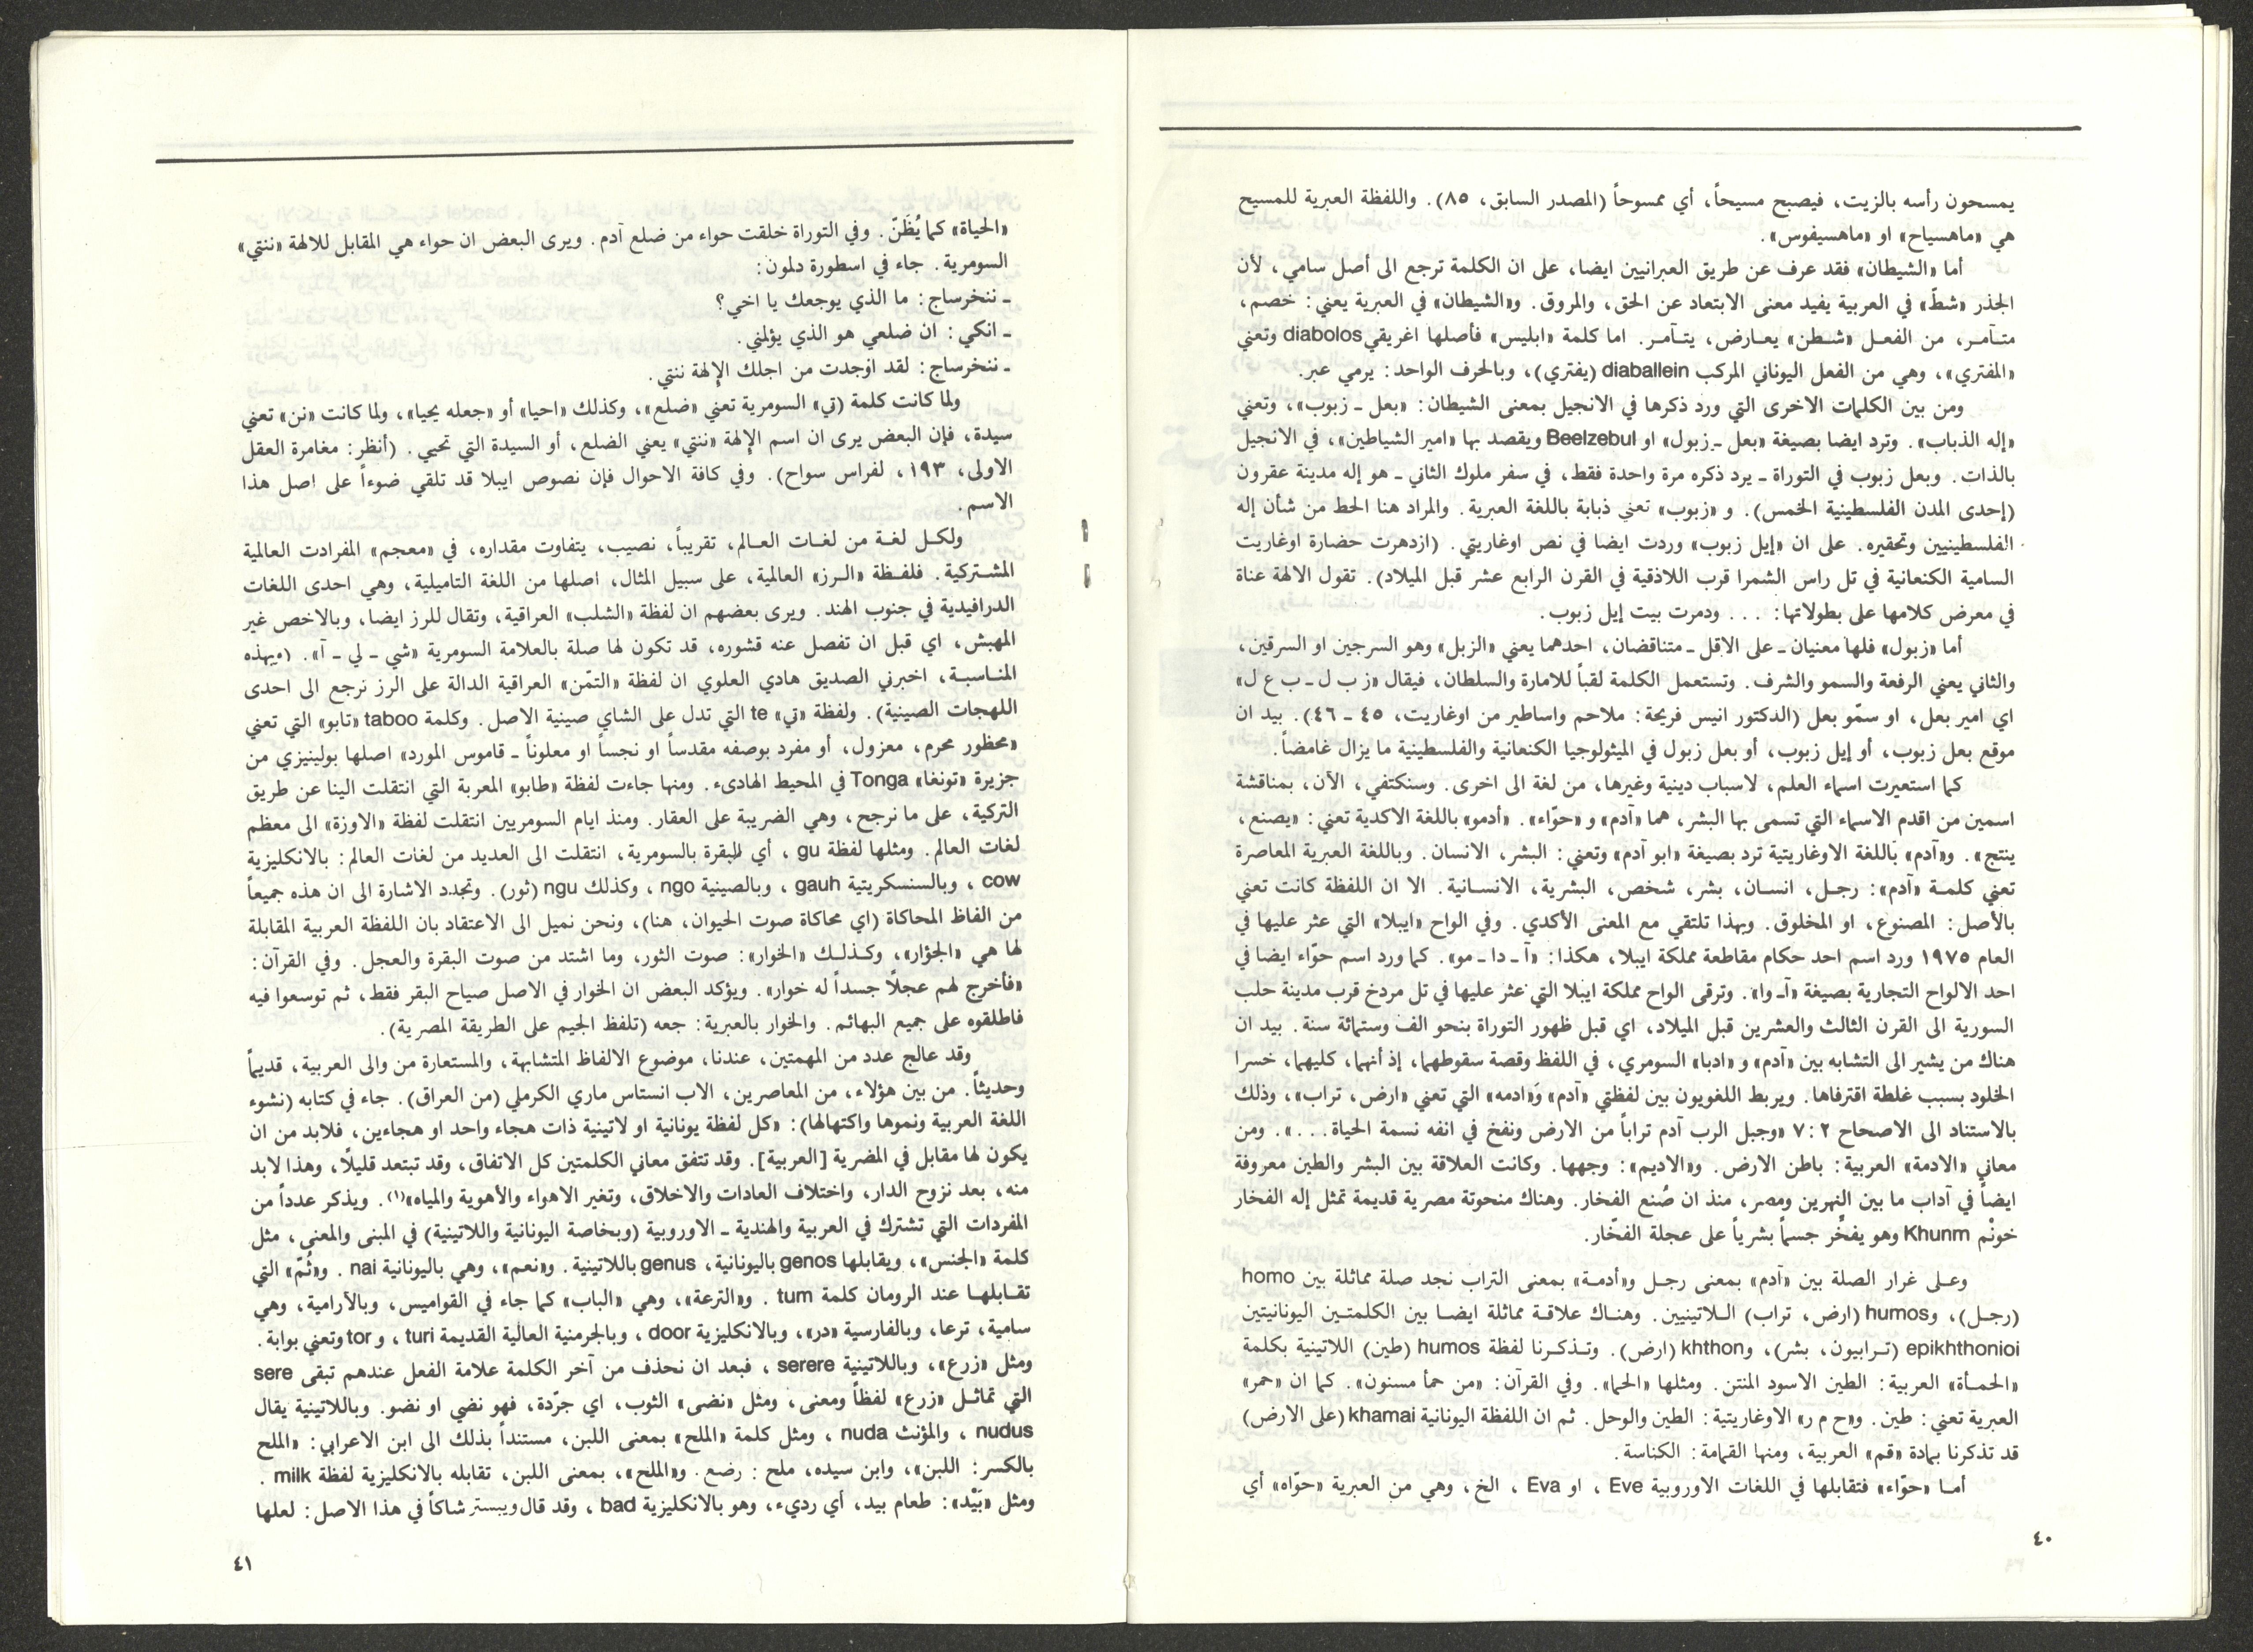 يمسحون رأسه بالزيت، فيصبح مسيحاً، أي ممسوحاً (المصدر السابق، ٨٥). واللفظة العبرية للمسيح
هي «ماهسياح» او «ماهسيفوس».
أما «الشيطان» فقد عرف عن طريق العبرانيين ايضا، على ان الكلمة ترجع الى أصل سامي، لأن
الجذر «شطّ» في العربية يفيد معنى الابتعاد عن الحق، والمروق. و«الشيطان» في العبرية يعني: خصم،
متـآمـر، من الفعـل «شـطن» يعـارض، يتـآمـر. اما كلمة «ابليس» فأصلها اغريقي diabolos وتعني
«المفتري»، وهي من الفعل اليوناني المركب diaballein (يفتري)، وبالحرف الواحد: يرمي عبر.
ومن بين الكلمات الاخرى التي ورد ذكرها في الانجيل بمعنى الشيطان: «بعل ـ زبوب»، وتعني
«إله الذباب». وترد ايضا بصيغة «بعل ـ زبول» او Beelzebul ويقصد بها «امير الشياطين»، في الانجيل
بالذات. وبعل زبوب في التوراة ـ يرد ذكره مرة واحدة فقط، في سفر ملوك الثاني ـ هو إله مدينة عقرون
(إحدى المدن الفلسطينية الخمس). و «زبوب» تعني ذبابة باللغة العبرية. والمراد هنا الحط من شأن إله
الفلسطينيين وتحقيره. على ان «إيل زبوب» وردت ايضا في نص اوغاريتي. (ازدهرت حضارة اوغاريت
السامية الكنعانية في تل راس الشمرا قرب اللاذقية في القرن الرابع عشر قبل الميلاد). تقول الالهة عناة
في معرض كلامها على بطولاتها: . . . ودمرت بيت إيل زبوب.
أما «زبول» فلها معنيان ـ على الاقل ـ متناقضان، احدهما يعني «الزبل» وهو السرجين او السرقين،
والثاني يعني الرفعة والسمو والشرف. وتستعمل الكلمة لقباً للامارة والسلطان، فيقال «ز ب ل ـ ب ع ل»
اي امير بعل، او سمّو بعل (الدكتور انيس فريحة: ملاحم واساطير من اوغاريت، ٤٥ ـ ٤٦). بيد ان
موقع بعل زبوب، أو إيل زبوب، أو بعل زبول في الميثولوجيا الكنعانية والفلسطينية ما يزال غامضاً.
كما استعيرت اسماء العلم، لاسباب دينية وغيرها، من لغة الى اخرى. وسنكتفي، الآن، بمناقشة
اسمين من اقدم الاسماء التي تسمى بها البشر، هما «آدم» و «حوّاء». «أدمو» باللغة الاكدية تعني: «يصنع،
ينتج». و«آدم» باللغة الاوغاريتية ترد بصيغة «ابو آدم» وتعني: البشر، الانسان. وباللغة العبرية المعاصرة
تعني كلمـة «آدم»: رجـل، انسـان، بشر، شخص، البشرية، الانسـانية. الا ان اللفظة كانت تعني
بالأصل: المصنوع، او المخلوق. وبهذا تلتقي مع المعنى الأكدي. وفي الواح «ايبلا» التي عثر عليها في
العام ١٩٧٥ ورد اسم احد حكام مقاطعة مملكة ايبلا، هكذا: «آ ـ دا ـ مو». كما ورد اسم حوّاء ايضا في
احد الالواح التجارية بصيغة «آـ وا». وترقى الواح مملكة ايبلا التي عثر عليها في تل مردخ قرب مدينة حلب
السورية الى القرن الثالث والعشرين قبل الميلاد، اي قبل ظهور التوراة بنحو الف وستمائة سنة. بيد ان
هناك من يشير الى التشابه بين «آدم» و «ادبا» السومري، في اللفظ وقصة سقوطهما، إذ أنهما، كليهما، خسرا
الخلود بسبب غلطة اقترفاها. ويربط اللغويون بين لفظتي «آدم» وَ«ادمه» التي تعني «ارض، تراب»، وذلك
بالاستناد الى الاصحاح ٢ : ٧ «وجبل الرب آدم تراباً من الارض ونفخ في انفه نسمة الحياة. . .». ومن
معاني «الادمة» العربية: باطن الارض. و«الاديم»: وجهها. وكانت العلاقة بين البشر والطين معروفة
ايضاً في آداب ما بين النهرين ومصر، منذ ان صُنع الفخار. وهناك منحوتة مصرية قديمة تمثل إله الفخار
خونْم Khunm وهو يفخّر جسماً بشرياً على عجلة الفخّار.
وعـلى غرار الصلة بين «آدم» بمعنى رجـل و«أدمـة» بمعنى التراب نجد صلة مماثلة بين homo
(رجـل)، وhumos (ارض، تراب) الـلاتينيين. وهنـاك علاقـة مماثلة ايضـا بين الكلمتـين اليونانيتين
epikhthonioi (تـرابيون، بشر)، وkhthon (ارض). وتـذكـرنا لفظة humos (طين) اللاتينية بكلمة
«الحمـأة» العربية: الطين الاسود المنتن. ومثلها «الحما». وفي القرآن: «من حمأ مسنون». كما ان «حمر»
العبرية تعني: طين. و«ح م ر» الاوغاريتية: الطين والوحل. ثم ان اللفظة اليونانية khamai (على الارض)
قد تذكرنا بمادة «قم» العربية، ومنها القمامة: الكناسة.
أمـا «حوّاء» فتقابلها في اللغات الاوروبية Eve ، او Eva ، الخ، وهي من العبرية «حوّاه» أي
٤٠
«الحياة» كما يُظَنّ. وفي التوراة خلقت حواء من ضلع آدم. ويرى البعض ان حواء هي المقابل للالهة «ننتي»
السومرية. جاء في اسطورة دلمون:
ـ ننخرساج: ما الذي يوجعك يا اخي؟
ـ انكي: ان ضلعي هو الذي يؤلمني.
ـ ننخرساج: لقد اوجدت من اجلك الإلهة ننتي.
ولما كانت كلمة (تي» السومرية تعني «ضلع»، وكذلك «احيا» أو «جعله يحيا»، ولما كانت «نن» تعني
سيدة، فإن البعض يرى ان اسم الإلهة «ننتي» يعني الضلع، أو السيدة التي تحيي. (أنظر: مغامرة العقل
الاولى، ١٩٣، لفراس سواح). وفي كافة الاحوال فإن نصوص ايبلا قد تلقي ضوءاً على اصل هذا
الاسم.
ولكـل لغـة من لغـات العـالم، تقريباً، نصيب، يتفاوت مقداره، في «معجم» المفرادت العالمية
المشـتركية. فلفـظة «الـرز» العالمية، على سبيل المثال، اصلها من اللغة التاميلية، وهي احدى اللغات
الدرافيدية في جنوب الهند. ويرى بعضهم ان لفظة «الشلب» العراقية، وتقال للرز ايضا، وبالاخص غير
المهبش، اي قبل ان تفصل عنه قشوره، قد تكون لها صلة بالعلامة السومرية «شي ـ لي ـ آ». (وبهذه
المنـاسبـة، اخبرني الصديق هادي العلوي ان لفظة «التمّن» العراقية الدالة على الرز نرجع الى احدى
اللهجات الصينية). ولفظة «تي» te التي تدل على الشاي صينية الاصل. وكلمة taboo «تابو» التي تعني
«محظور محرم، معزول، أو مفرد بوصفه مقدساً او نجساً او معلوناً ـ قاموس المورد» اصلها بولينيزي من
جزيرة «تونغا» Tonga في المحيط الهادىء. ومنها جاءت لفظة «طابو» المعربة التي انتقلت الينا عن طريق
التركية، على ما نرجح، وهي الضريبة على العقار. ومنذ ايام السومريين انتقلت لفظة «الاوزة» الى معظم
لغات العالم. ومثلها لفظة gu ، أي للبقرة بالسومرية، انتقلت الى العديد من لغات العالم: بالانكليزية
cow ، وبالسنسكريتية gauh ، وبالصينية ngo ، وكذلك ngu (ثور). وتجدد الاشارة الى ان هذه جميعاً
من الفاظ المحاكاة (اي محاكاة صوت الحيوان، هنا)، ونحن نميل الى الاعتقاد بان اللفظة العربية المقابلة
لها هي «الجؤار»، وكـذلـك «الخوار»: صوت الثور، وما اشتد من صوت البقرة والعجل. وفي القرآن:
«فأخرج لهم عجلاً جسداً له خوار». ويؤكد البعض ان الخوار في الاصل صياح البقر فقط، ثم توسعوا فيه
فاطلقوه على جميع البهائم. والخوار بالعبرية: جعه (تلفظ الجيم على الطريقة المصرية).
وقد عالج عدد من المهمتين، عندنا، موضوع الالفاظ المتشابهة، والمستعارة من والى العربية، قديماً
وحديثاً. من بين هؤلاء، من المعاصرين، الاب انستاس ماري الكرملي (من العراق). جاء في كتابه (نشوء
اللغة العربية ونموها واكتهالها): «كل لفظة يونانية او لاتينية ذات هجاء واحد او هجاءين، فلابد من ان
يكون لها مقابل في المضرية [العربية]. وقد تتفق معاني الكلمتين كل الاتفاق، وقد تبتعد قليلًا، وهذا لابد
منه، بعد نزوح الدار، واختلاف العادات والاخلاق، وتغير الاهواء والأهوية والمياه»(١). ويذكر عدداً من
المفردات التي تشترك في العربية والهندية ـ الاوروبية (وبخاصة اليونانية واللاتينية) في المبنى والمعنى، مثل
كلمة «الجنس»، ويقابلها genos باليونانية، genus باللاتينية. و«نعم»، وهي باليونانية nai . و«ثُمّ» التي
تقـابلهـا عند الرومان كلمة tum . و«الترعة»، وهي «الباب» كما جاء في القواميس، وبالآرامية، وهي
سامية، ترعا، وبالفارسية «در»، وبالانكليزية door ، وبالجرمنية العالية القديمة turi ، و tor وتعني بوابة.
ومثل «زرع»، وباللاتينية serere ، فبعد ان نحذف من آخر الكلمة علامة الفعل عندهم تبقى sere
التي تماثـل «زرع» لفظاً ومعنى، ومثل «نضى» الثوب، اي جرّدة، فهو نضي او نضو. وباللاتينية يقال
nudus ، والمؤنث nuda ، ومثل كلمة «الملح» بمعنى اللبن، مستنداً بذلك الى ابن الاعرابي: «الملح
بالكسر: اللبن»، وابن سيده، ملح : رضع. و«الملح»، بمعنى اللبن، تقابله بالانكليزية لفظة milk .
ومثل «بَيْد»: طعام بيد، أي رديء، وهو بالانكليزية bad ، وقد قال ويبستر شاكاً في هذا الاصل: لعلها
٤١